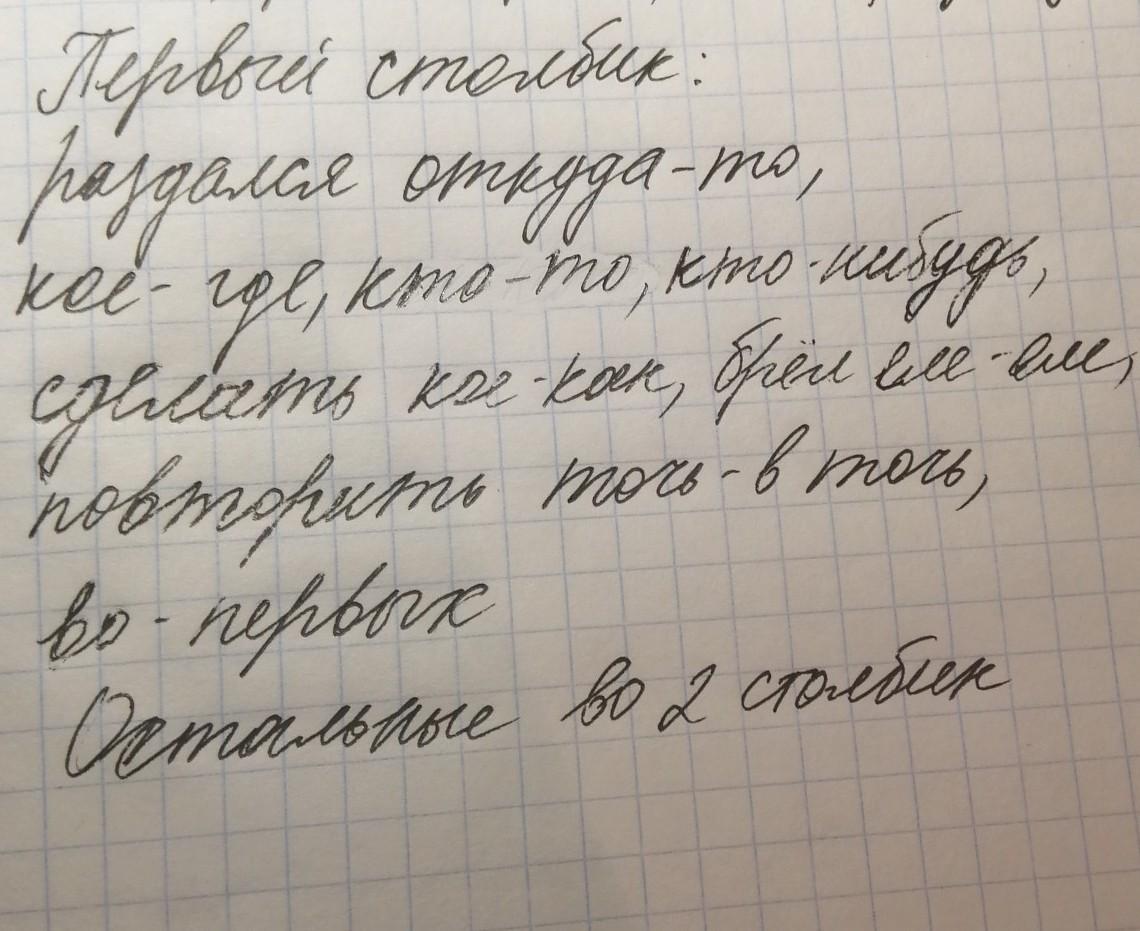 Первый столбик:
раздался откуда-то,
кое- где, кто-то, кто-нибудь,
сделать кое-как, брёл еле-еле,
повторить точь-в точь,
во-первых
Остальные во 2 столбик